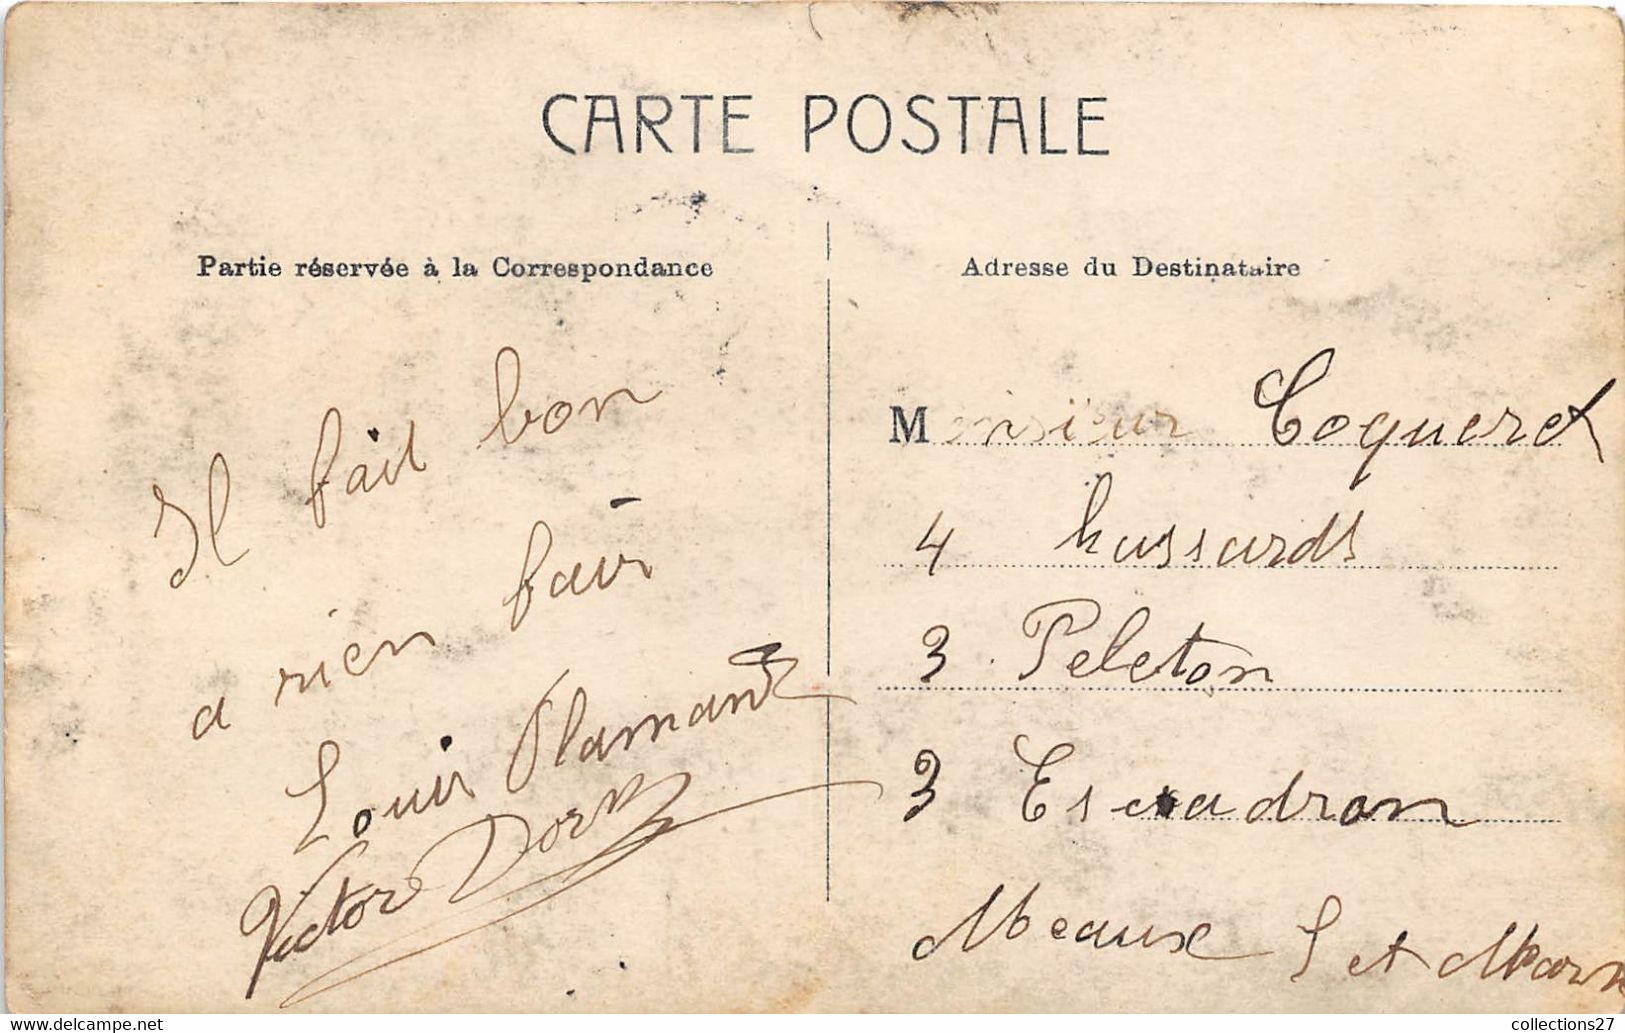 CARTE POSTALE
Partie réservée à la Correspondance
Il fait bon
a rien fair
Louis Flamant
Victor
Adresse du Destinataire
Monsieur Coqueret
4 hussards
3 Peleton
3 Escadron
Meaux S et Marn
collections27